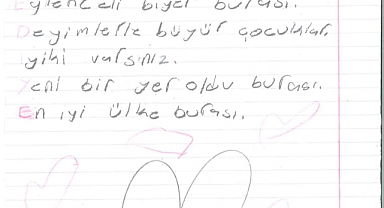 Eğlenceli biyer burası.
Deyimlerle büyür çocuklar.
iyiki varsınız.
Yeni bir yer oldu burası.
En iyi ülke burası.